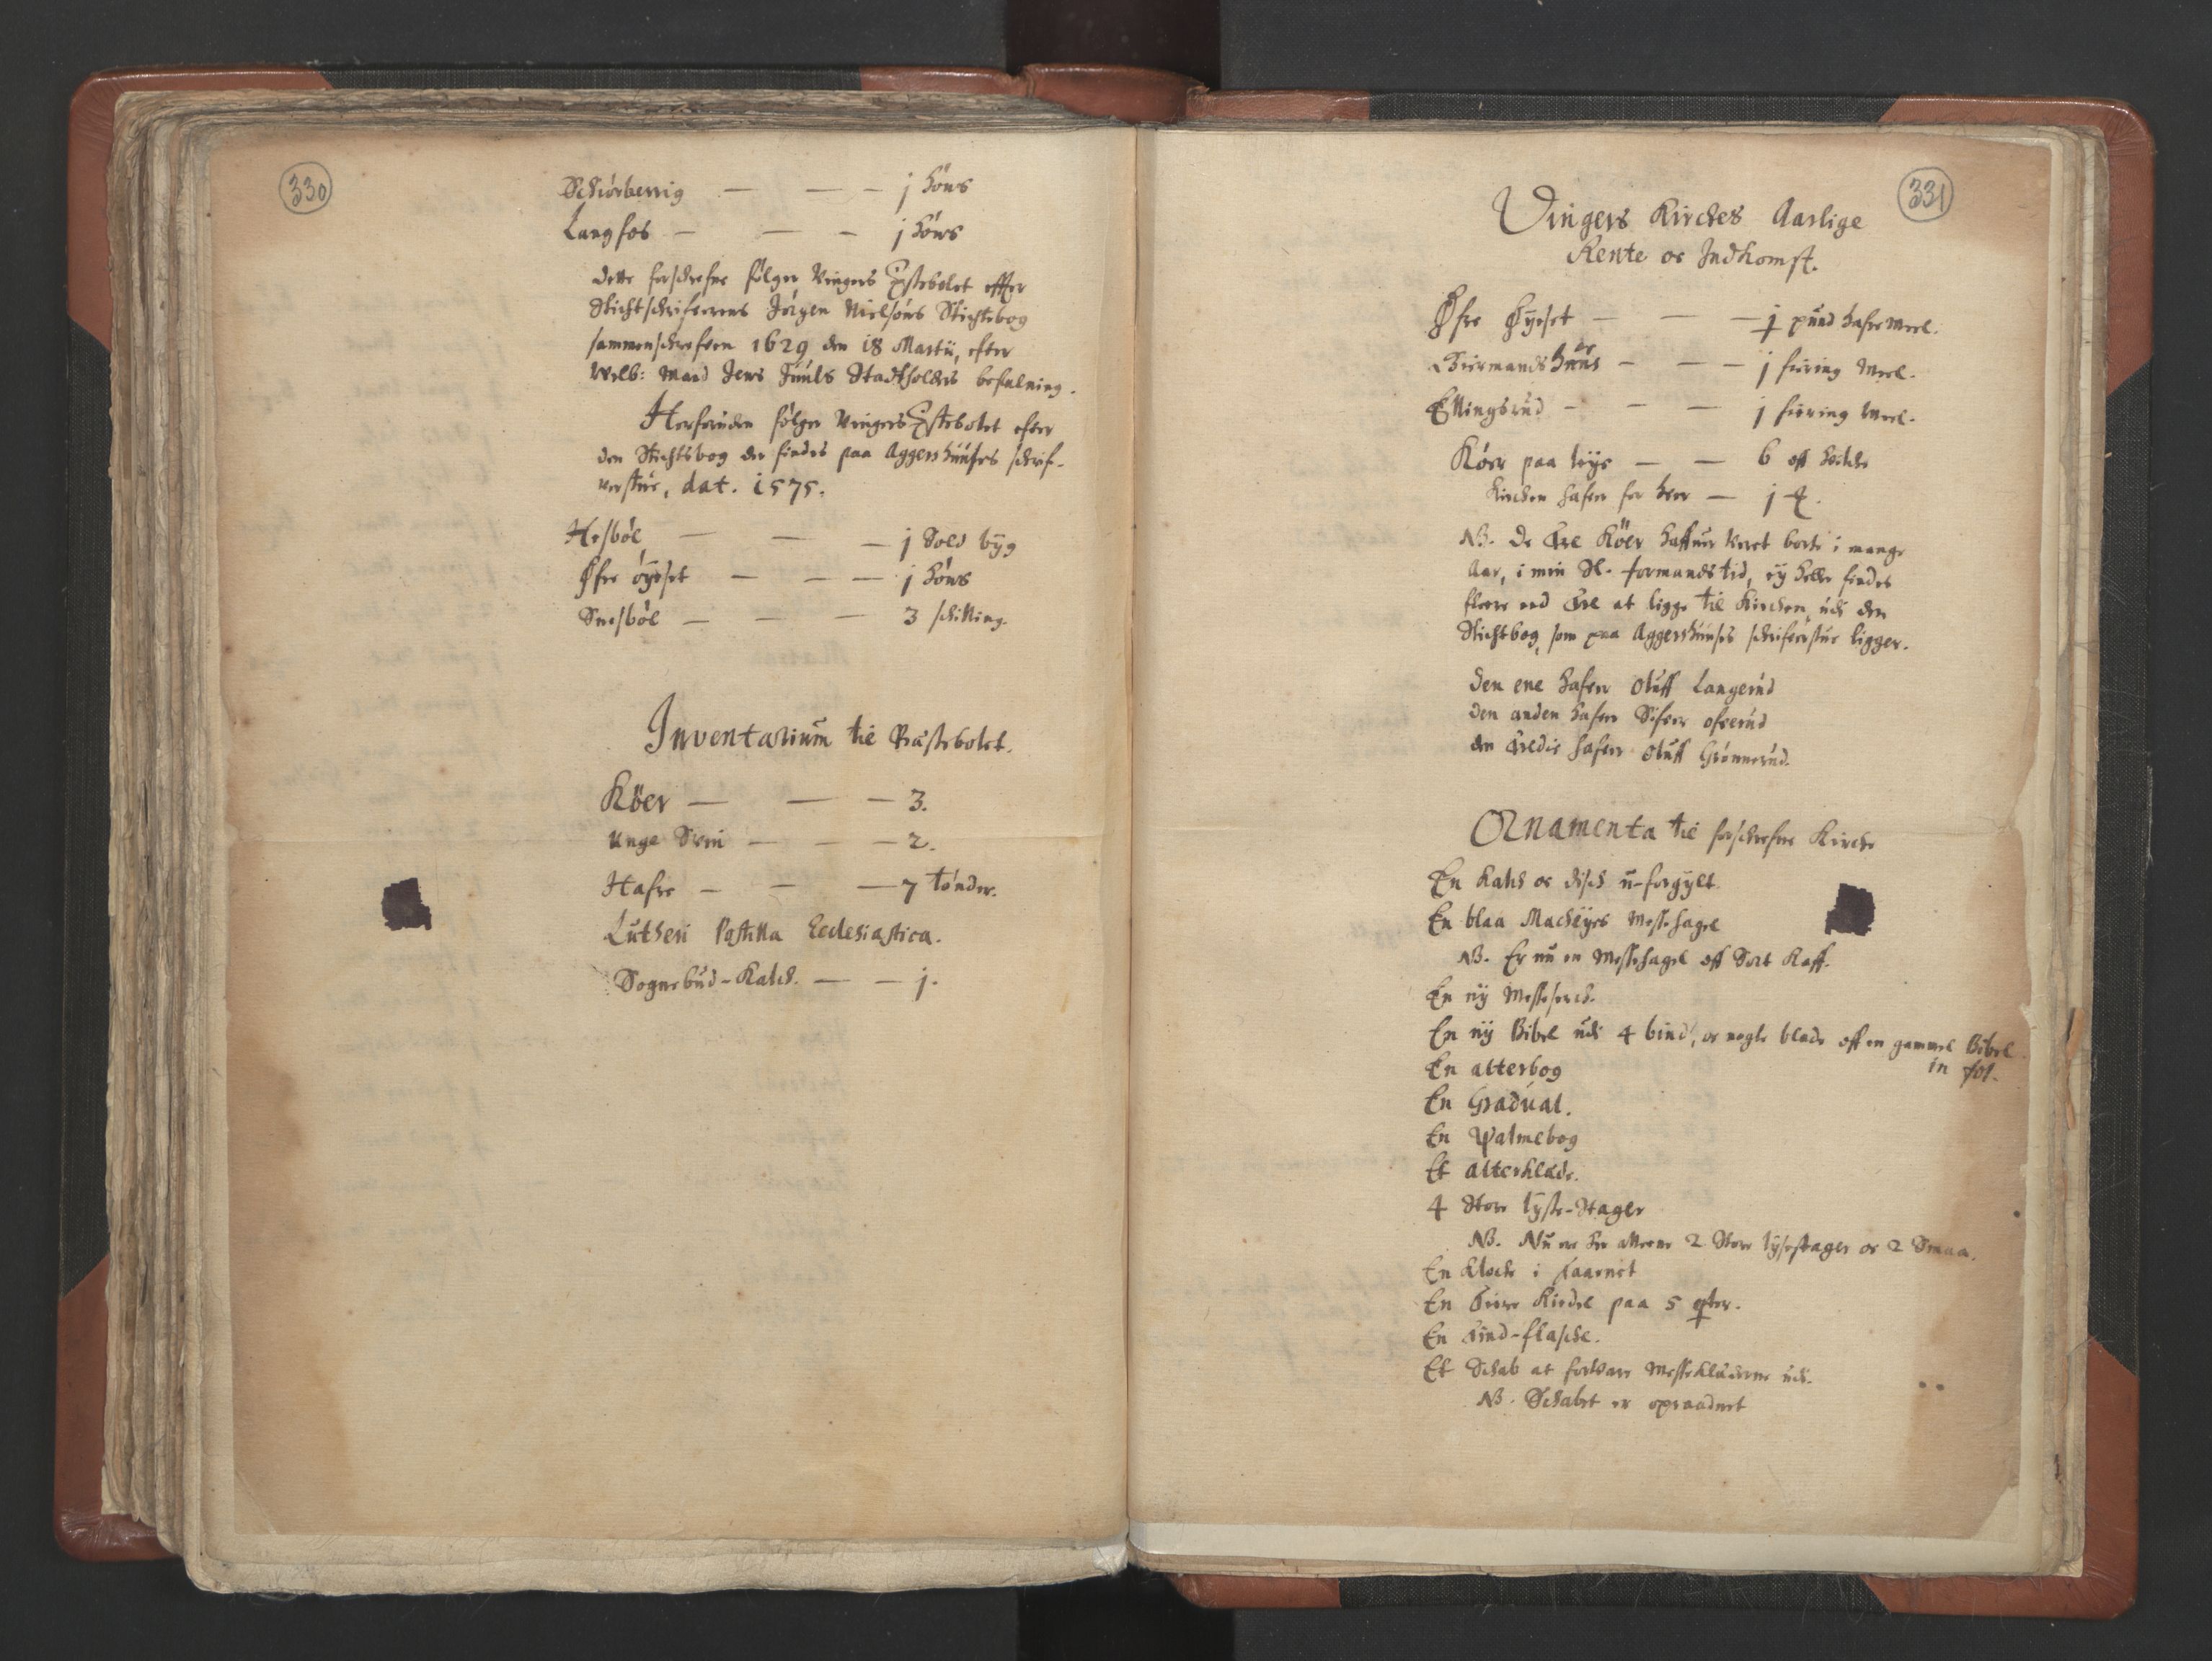 330
Schiörberrig — — — j höns
Langfos — — — j höns
dette forschrefne fölger Vingers Prestebolet effter
Stichtschrifverens Jörgen Nielsöns Stichtebog
sammenschrefven 1629 den 18 Martii, efter
Velb: Mand Jens Juuls Stadtholders befalning.
Herforuden fölger Vingers Prestebolet efter
den Stichtsbog der findes paa Aggershuuses schrif-
verstue, dat. 1575.
Hesböl — — — j Sold byg
Øfre öyeset — — — j höns
Snesböl — — — 3 schilling.
Inventarium til Præstebolet.
Köer — — — 3.
Unge Svin — — — 2.
Hafre — — — 7 tönder.
Lutheri Postilla Ecclesiastica.
Sognebud-Kalch. — — j.
331
Vingers Kirckes Aarlige
Rente oc Indkomst.
Øfre Øyeset — — — j pund hafre meel.
huus — — — j fiering Meel.
Ellingsrud — — — j fiering Meel.
Köer paa leye — — 6 aff huilche
Kirchen hafver for hver — j
NB. De tre Köer haffuer veret borte i mange
Aar, i min Sl. formands tid, ey heller findes
fleere end tre at ligge til Kirchen, udi den
Stichtbog, som paa Aggershuuses schrifverstue ligger.
Den ene hafver Oluff Langerud
Den anden hafver Sifver ofverud
den tredie hafver Oluff Grönnerud.
Ornamenta til forschrefne Kircke
En Kalch oc disch u-forgylt.
En blaa Macheyes Messehagel
NB. Er nu en Messehagel aff Sort Kaff.
En ny Messeserch.
En ny Bibel udi 4 bind, oc nogle blade aff en gammel Bibel
in fol.
En alterbog
En Gradual.
En Psalmebog
Et alterklæde.
4 Store lyse-Stager
NB. Nu ere her alleene 2 Store lysestager oc 2 Smaa.
En Klocke i taarnet
En Kiedel paa 5
En Tind-flasche.
Et Schab at forvare Messeklæderne udi.
NB. Schabet er opraadnet